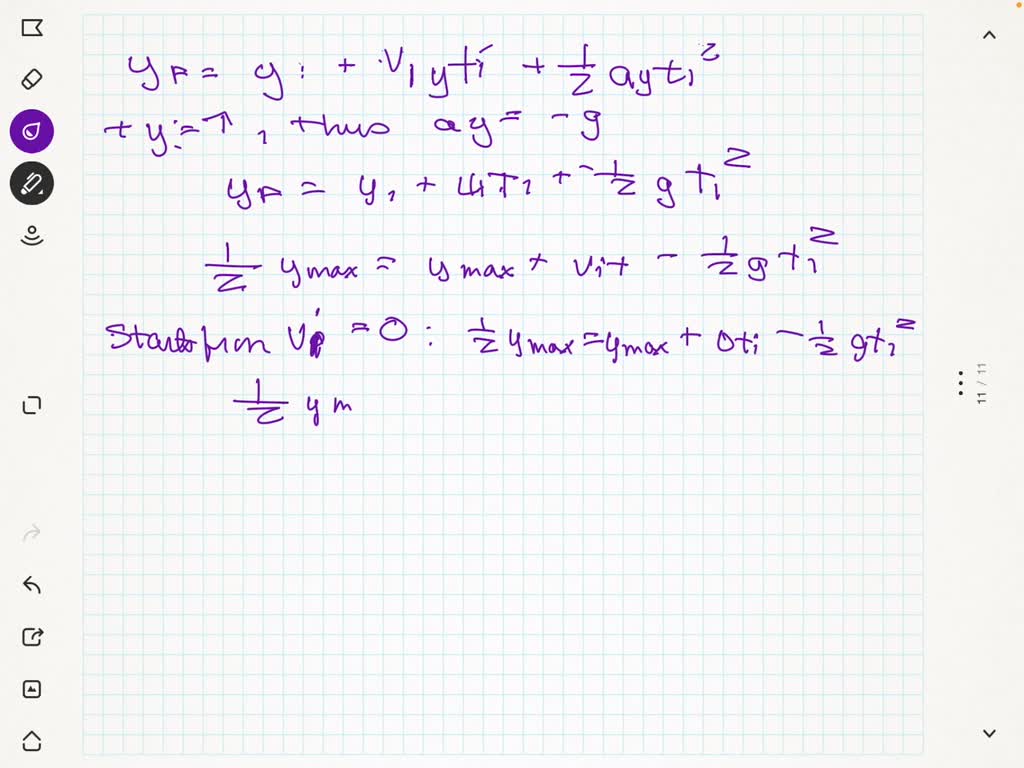 yF = yi + v1yti + 1/2 ayt1²
+y:=↑, thus ay = -g
yF = y1 + v1T1 + -1/2 gt1²
1/2 ymax = ymax + vit - 1/2 gt1²
Starts from vi = 0 : 1/2 ymax = ymax + 0ti - 1/2 gt1²
1/2 ym
11 / 11